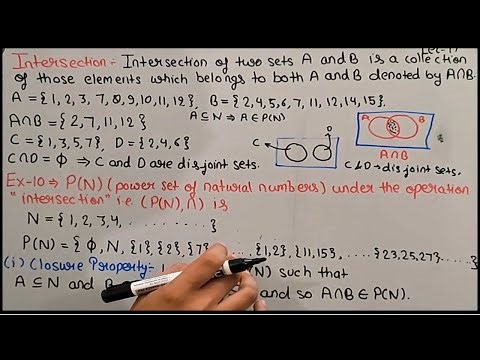 Lec-17
Intersection:- Intersection of two sets A and B is a collection
of those elements which belongs to both A and B denoted by A∩B.
A = {1, 2, 3, 7, 8, 9, 10, 11, 12}, B = {2, 4, 5, 6, 7, 11, 12, 14, 15}.
A ⊆ N ⇒ A ∈ P(N)
A∩B = {2, 7, 11, 12}
C = {1, 3, 5, 7}, D = {2, 4, 6}
C∩D = ϕ ⇒ C and D are disjoint sets.
C D
A B
A∩B
C & D → disjoint sets.
Ex-10 ⇒ P(N) (power set of natural numbers) under the operation
"intersection" i.e. (P(N), ∩) is
N = {1, 2, 3, 4, ........}
P(N) = {ϕ, N, {1}, {2}, {7} ....... {1,2}, {11,15}, .... {23,25,27} .....}
(i) Closure Property:- (N) such that
A ⊆ N and B and so A∩B ∈ P(N).